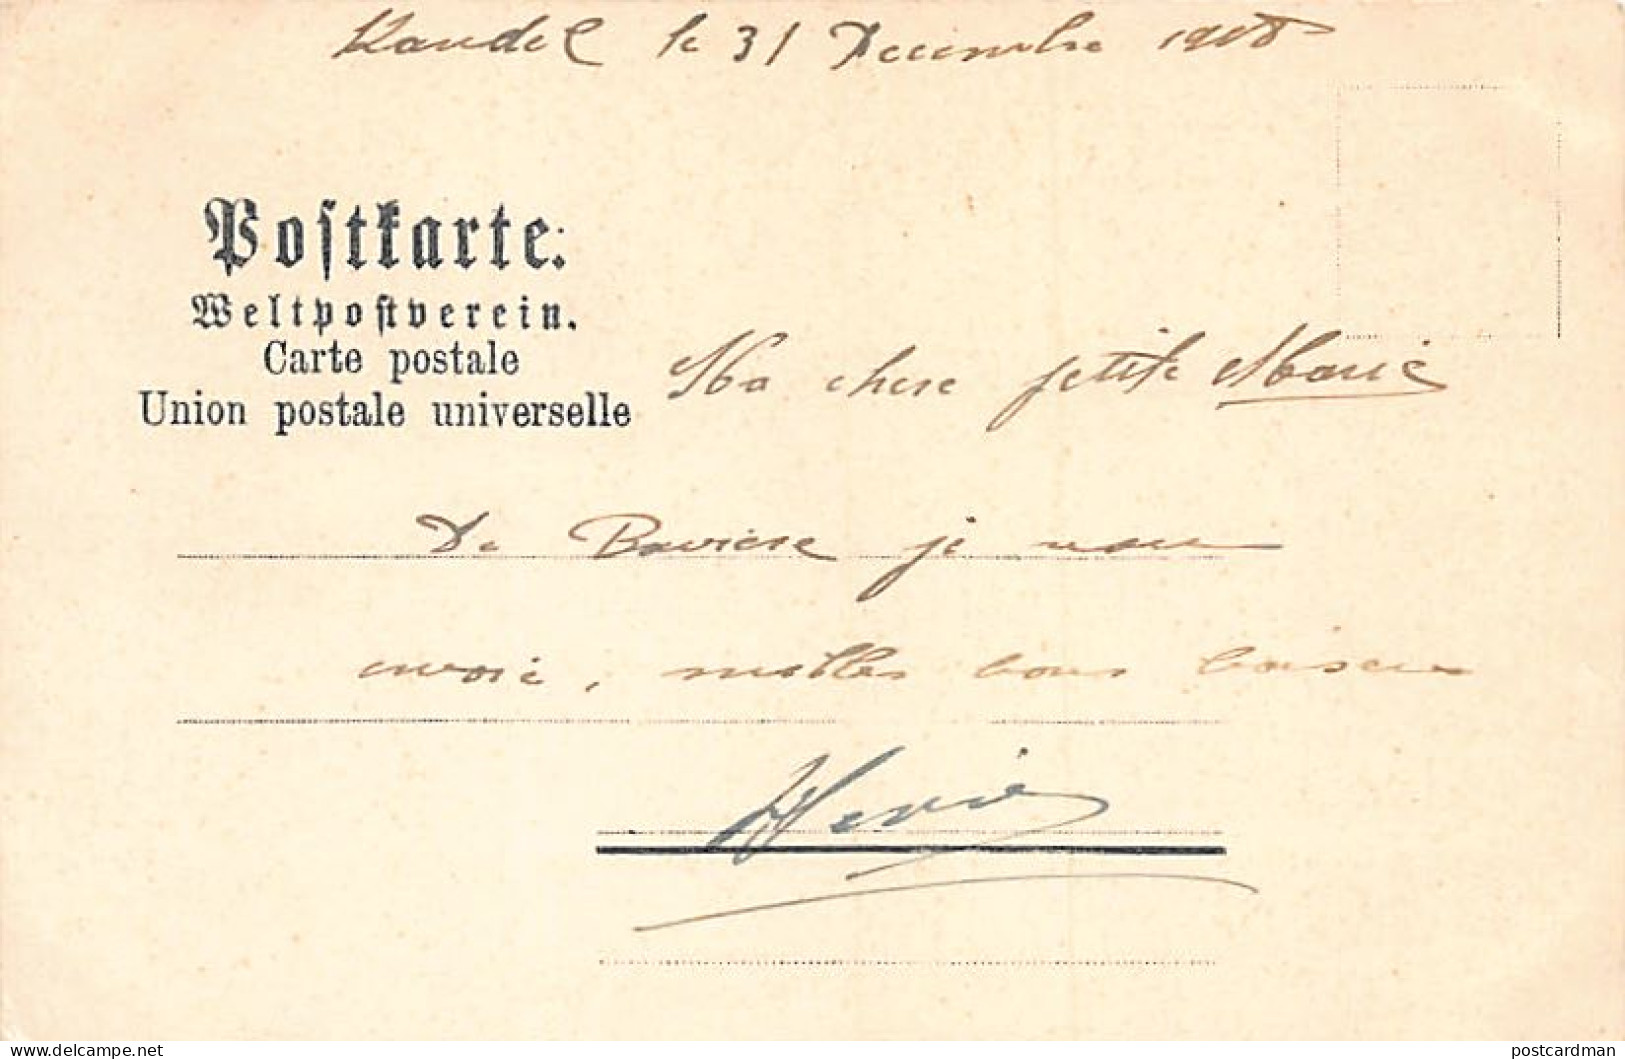 Kandel le 31 Decembre 1908
Postkarte.
Weltpostverein.
Carte postale
Union postale universelle
Ma chere petite Marie
De Baviere je vous
envoie, milles bons baisers
Henri
www.delcampe.net
postcardman